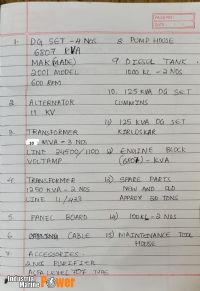 PAGE NO.
DATE
1. DG SET - 4 NOS
6807 KVA
MAK (MADE)
2001 MODEL
600 RPM
2. ALTERNATOR
11 KV
3. TRANSFORMER
MVA - 3 NOS
LINE 24500/1100
VOLTAMP
4. TRANSFORMER
1250 KVA - 2 NOS
LINE 11/433
5. PANEL BOARD
6 CABLE
7 ACCESSORIES
8. PUMP HOUSE
9. DIESEL TANK
1000 KL - 2 NOS
10. 125 KVA DG SET
CUMMINS
11) 125 KVA DG SET
KIRLOSKAR
12) ENGINE BLOCK
(6807) - KVA
13) SPARE PARTS
NEW AND OLD
APPROX 50 TONS
14) 100KL - 2 NOS
15) MAINTENANCE TOOL
HOUSE
Industrial
Marine Power